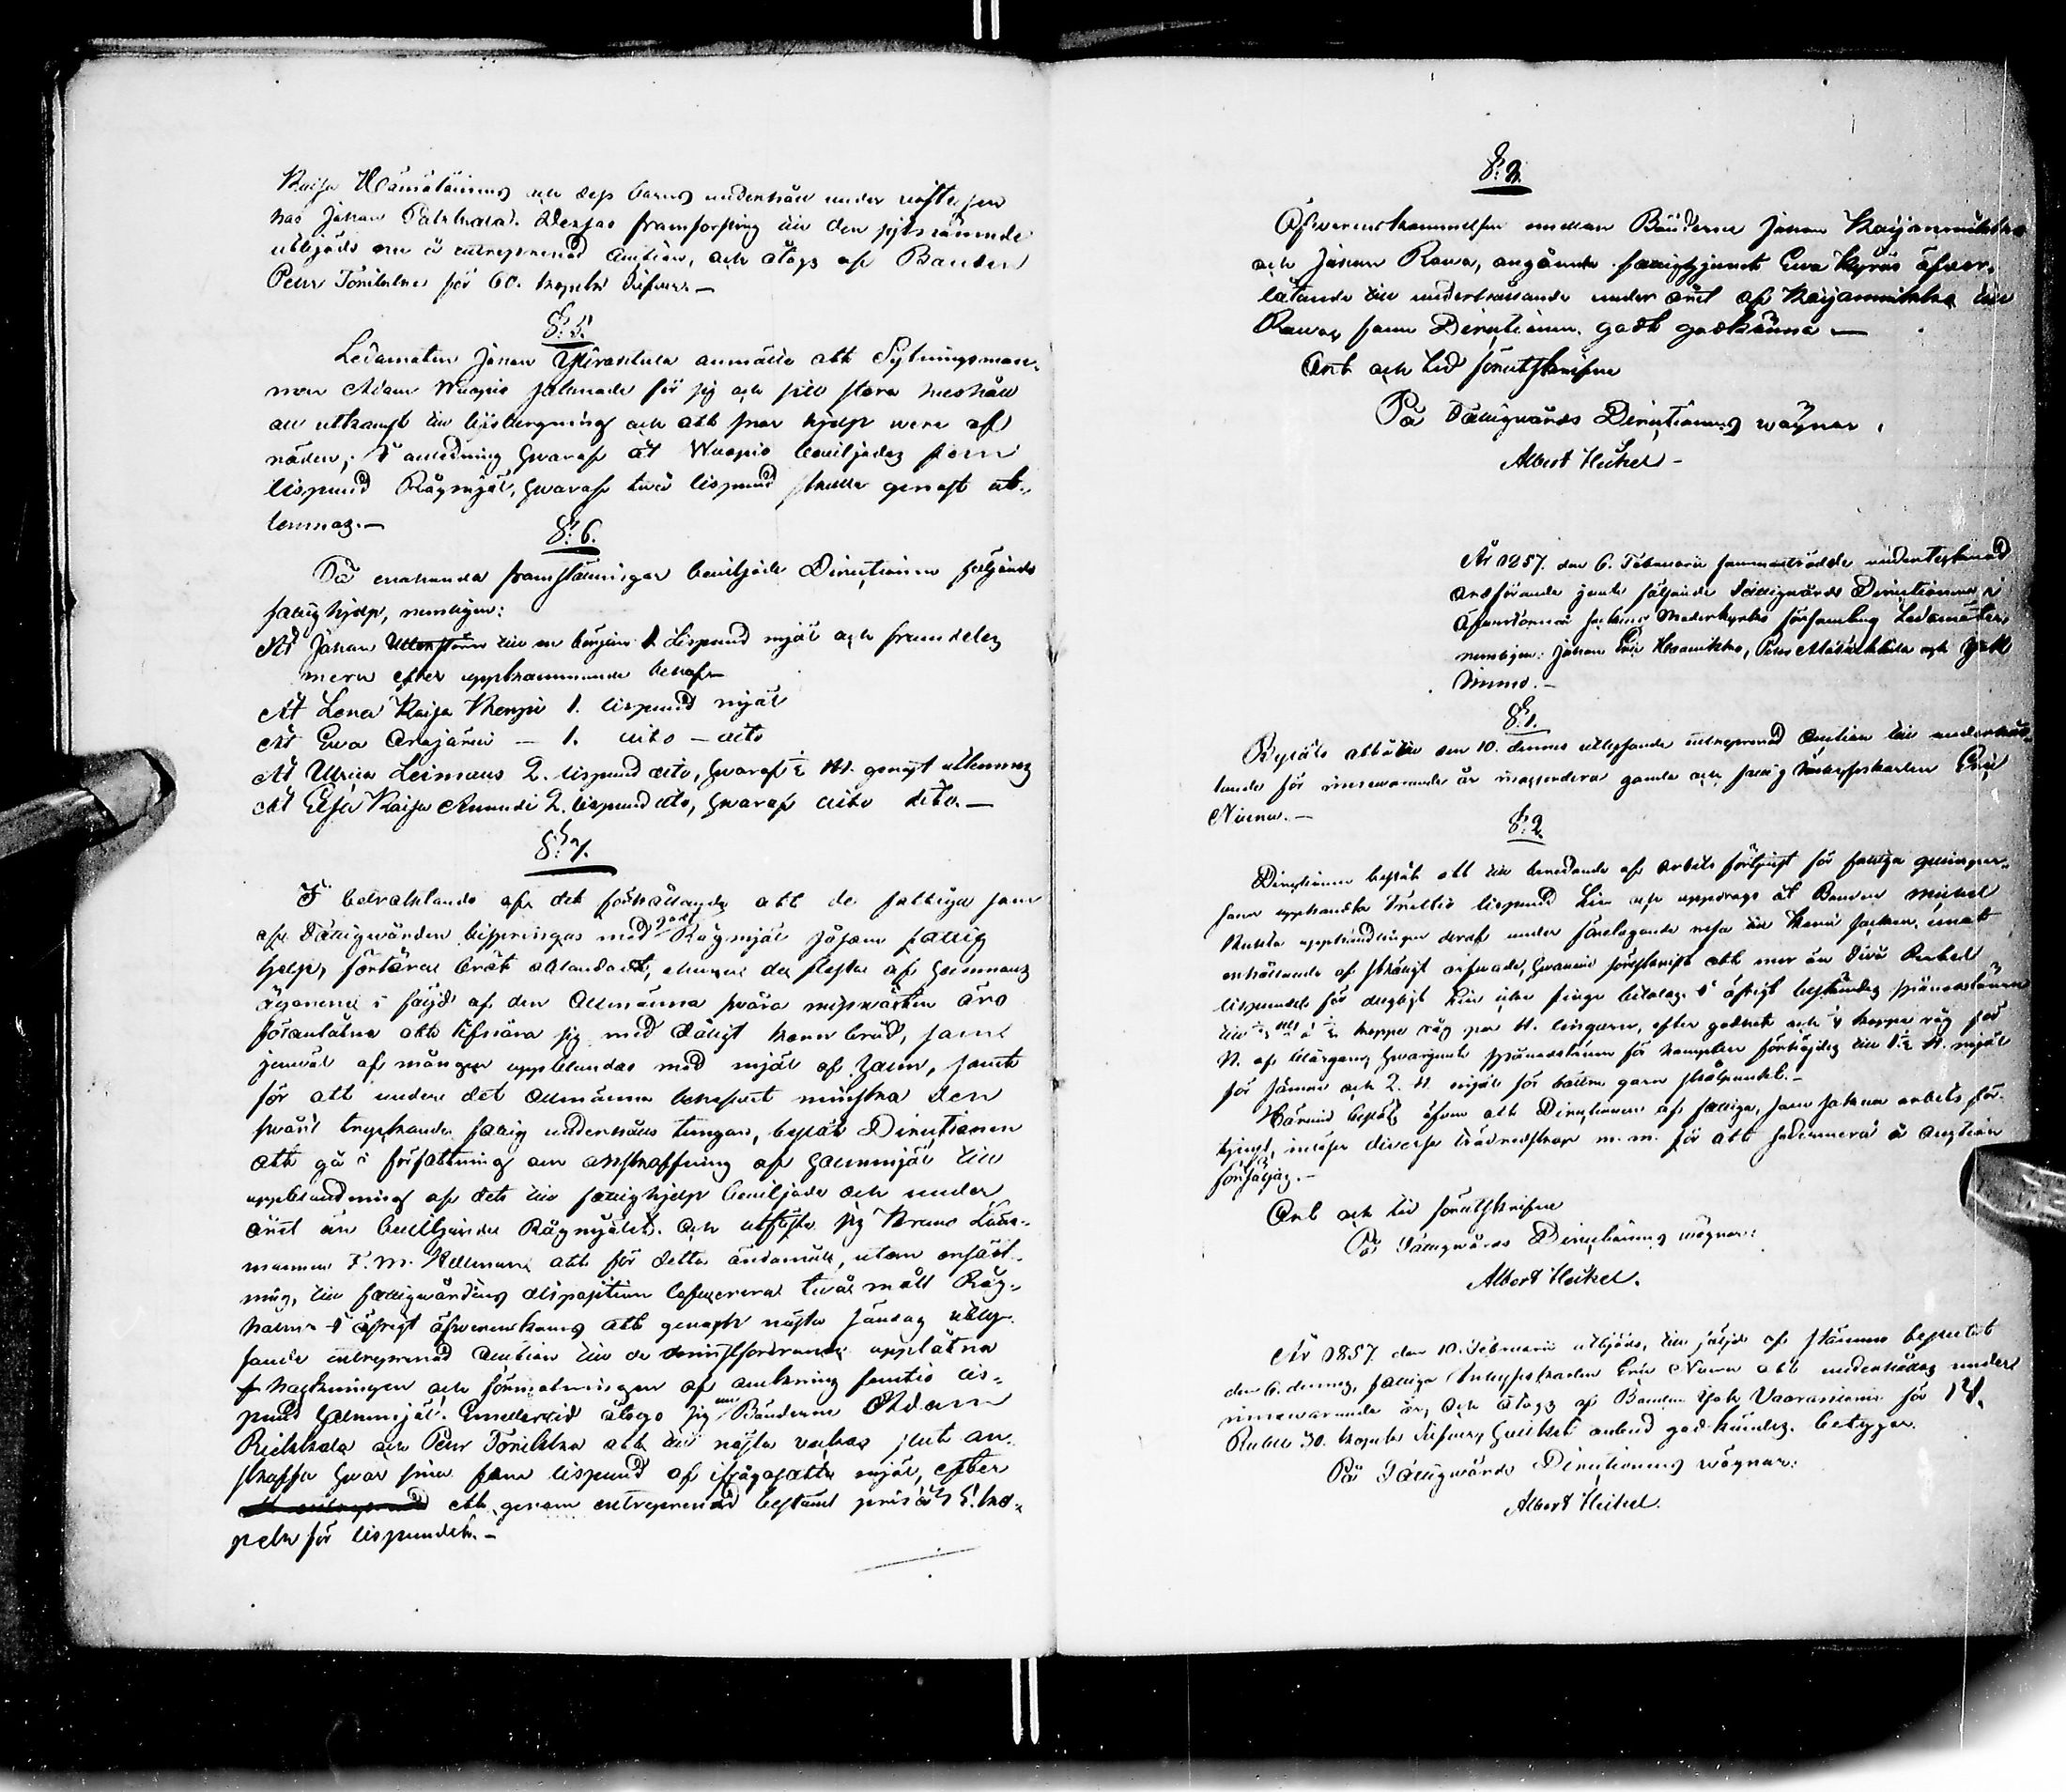 Kaisa Hämäläinens och dess barns underhåll under nästa
hos Johan Patskala. Dessas framforsling till den sistnämnde
utbjöds om å entreprenad Auction, och åtogs af Bonden
Petter Tönikka för 60. kopek Silfver.—
§: 5.
Ledamoten Johan Yliraskula anmälde att Sytningsman-
nen Adam Wuopio saknade för sig och sitt stora hushåll
all utkomst till lifsbergning och att snar hjelp wore af
nöden; I anledning hwaraf åt Wuopio beviljades fem
lispund Rågmjöl, hwaraf två lispund skulle genast ut-
lemnas.—
§: 6.
På enahanda framställningar beviljade Directionen följande
fattighjelp, nemligen:
Åt Johan till en början 1 Lispund mjöl och framdeles
mera efter uppkommande behof—
Åt Lena Kaisa 1. lispund mjöl
Åt Ewa Anajärvi — 1. dito — dito
Åt Ulrica Leimaus 2. lispund dito, hwaraf ½ genast utlemnas
Åt Elsa Kaisa Annudi 2. lispund dito, hwaraf dito dito.—
§: 7.
I betraktande af det förhållande att de fattiga som
af Fattigwården bispringas med godt Rågmjöl såsom fattig
hjelp, förtära bröt oblandadt, ehuru de flesta af hemmans
egarene i följd af den allmänna svåra misswäxten äro
föranlåtne att lifnära sig med dåligt korn bröd, som
jemväl af mången uppblandas med mjöl af halm, samt
för att under det allmänna behofwet minska den
svårt tryckande fattig underhålls tungan, beslöt Directionen
att gå i författning om anskaffning af halmmjöl till
uppblandning af det till fattighjelp beviljade och under
året än beviljande Rågmjölet. Och utfäste sig Krono Läns-
mannen F. M. Hellman att för detta ändamål, utan ersätt-
ning, till fattigwårdens disposition leferera twå mått Råg-
halm. I öfrigt öfverenskoms att genast nästa söndag utly-
sande entreprenad Auction till de
hackningen och förmalningen af omkring femtio lis-
pund halmmjöl. Emellertid åtogo sig Bönderne Adam
Riekkola och Petter Tönikka att till nästa veckas slut an-
skaffa hvar sina fem lispund af ifrågasatta mjöl, efter
ett genom entreprenad bestämt pris 5. ko-
pek för lispundet.—
§: 8.
Öfverenskommelsen mellan Bönderne Johan Kaijanniikko
och Johan Rawa, angående fattighjonet Ewa Kyrös öfver-
låtande till underhållande under året af Kaijanniikko till
Rawa, fann Directionen godt godkänna —
Ort och tid förutskrifne
På Fattigwårds Directionens wägnar,
Albert Heikel—
År 1857. den 6. Februarii sammanträdde undertecknad
Ordförande jemte följande Fattigwårds Directionens i
Öfvertorneå sockens Moderkyrko församling Ledamöter,
nemligen: Johan Eric Kaunikko, Petter Määttälä och
Nimno.—
§: 1.
Beslöts att till den 10. dennes utlysande entreprenad Auction till underhål-
lande för innewarande år gamle och fattig Inhysekarlen Eric
Niemi.—
§: 2.
Directionen beslöt att till beredande af arbets förtjenst för fattiga qwinsper-
soner upphandla Trettio lispund Lin och uppdrogs åt Bonden Michel
upphandlingen deraf under föreslagande resa till Kemi socken, emot
erhållande af skäligt arfvode, hwarvid föreskrifs att mer än två Rubel
lispundet för dugligt Lin icke finge betalas. I öfrigt bestämdes spånadslönen
till kappe råg per efter godhet och kappe råg för
af blårgarn, hwarjemte spånadslönen för hampan förhöjdes till 1½ mjöl
för sämre och 2. mjöl för bättre garn skålpundet.—
Härvid beslöts äfven att Directionen af fattige, som sakna arbets för-
tjenst, inlöser diverse trädredskap m. m. för att sedermera å auction
försäljas.—
Ort och tid förutskrifne
På Fattigwårds Directionens wägnar:
Albert Heikel.
År 1857. den 10. Februarii utbjöds, till följd af stämmo beslutet
den 6. dennes, fattiga Inhysekarlen Eric Niemi att underhållas under
innewarande år, och åtogs af Bonden Isak Vaaraniemi för 14.
Rubel 30. kopek Silfver, hvilket anbud godkändes. betygar.
På Fattigwårds Directionens wägnar:
Albert Heikel.